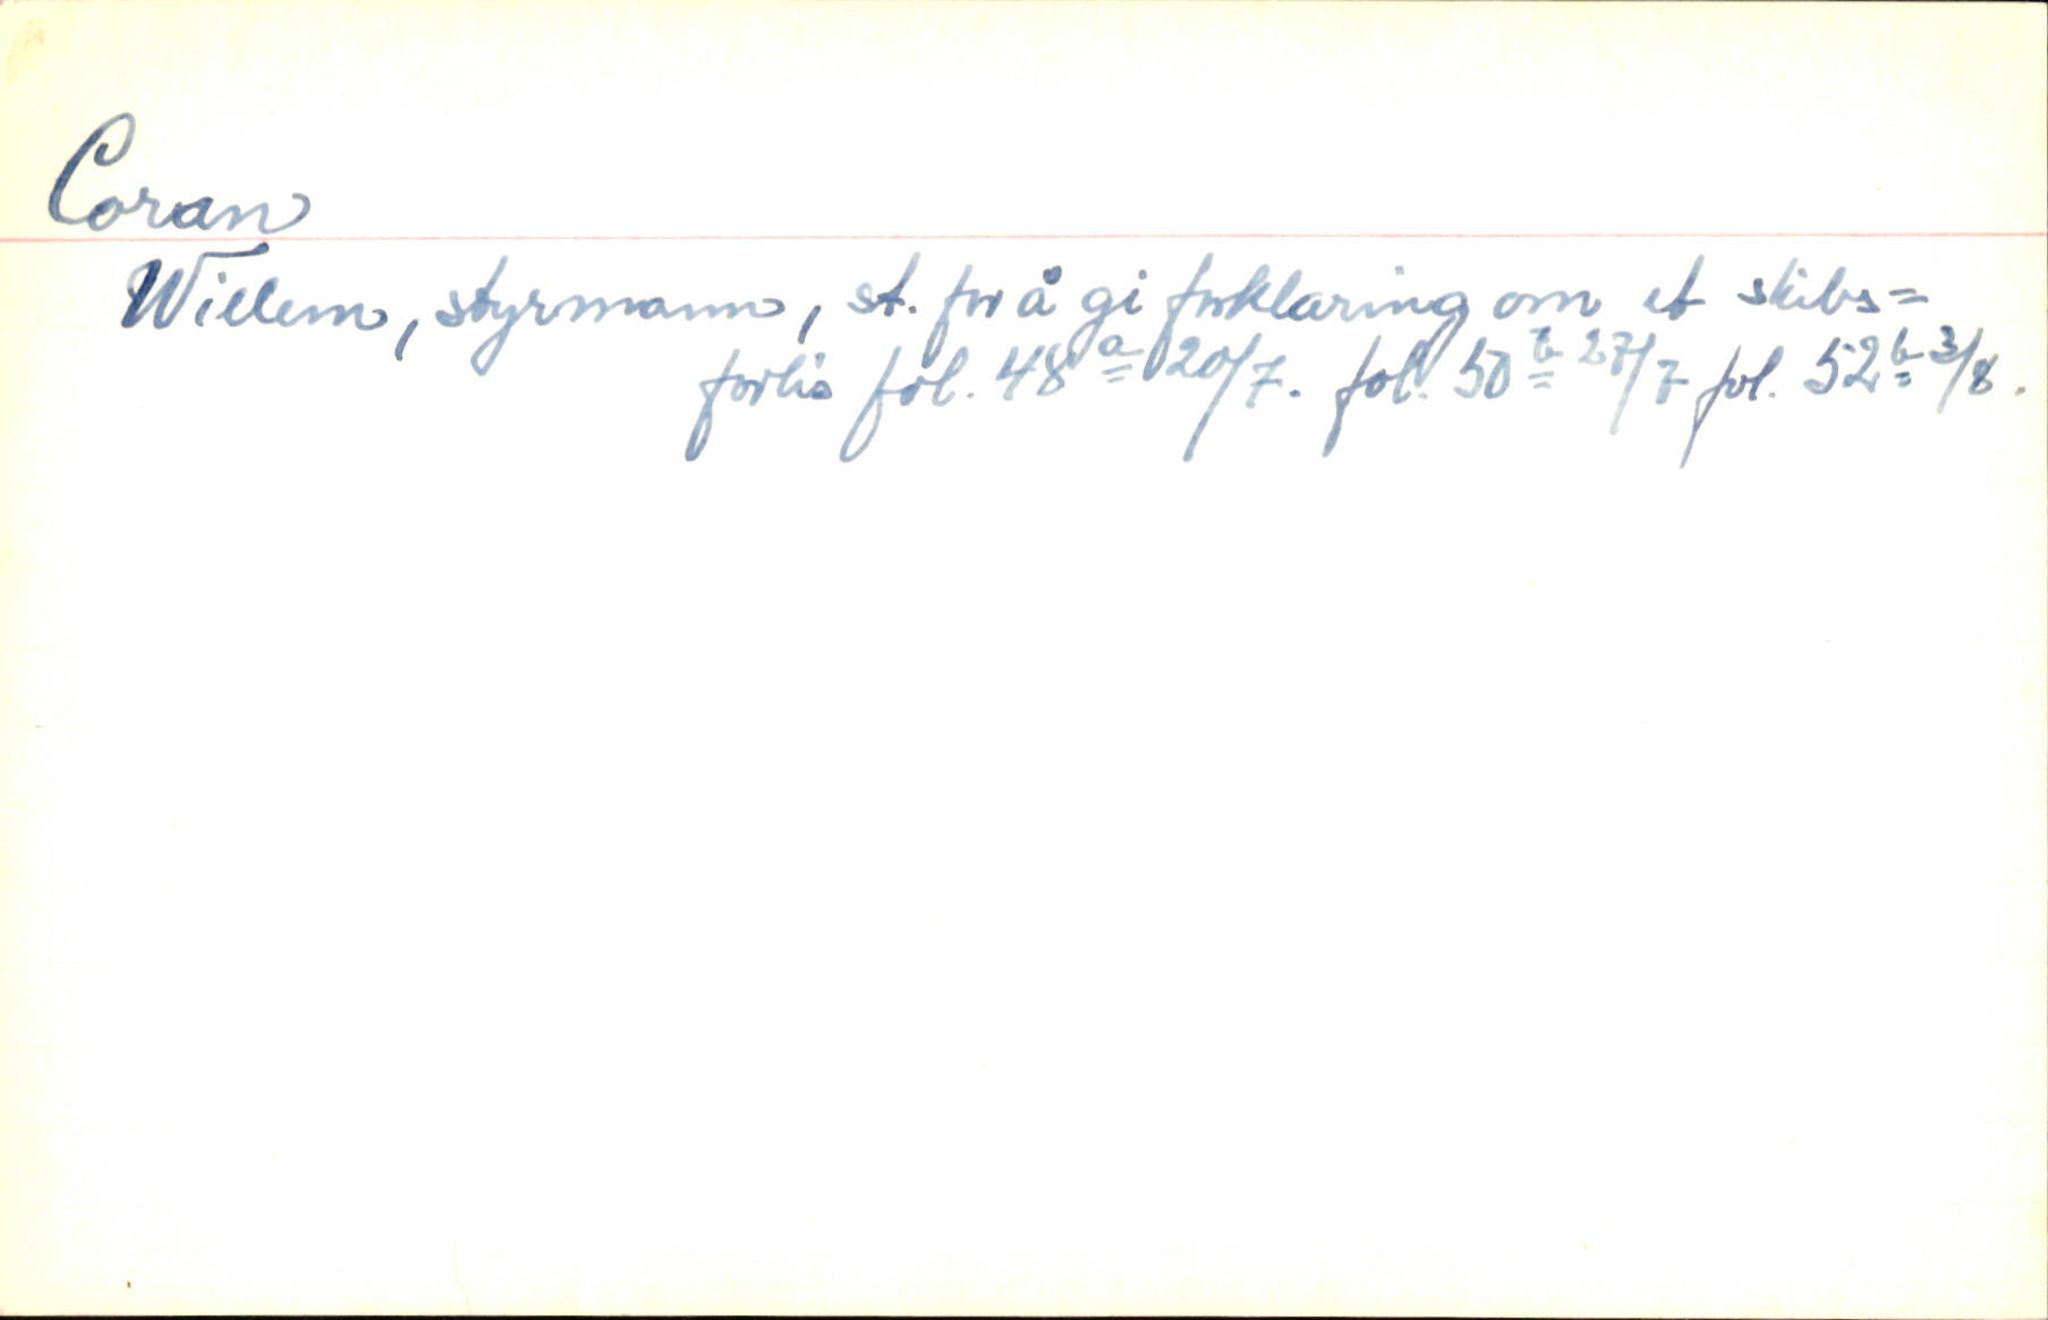 Coran
Willem, styrmann, st. for å gi forklaring om et skibs=
forlis fol. 48a 20/7. fol. 50b 27/7 fol. 52b 3/8.